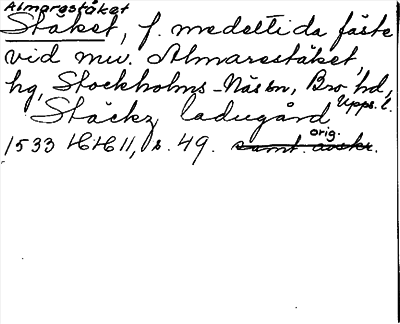 Almarestäket
Stäket, f. medeltida fäste
vid nuv. Almarestäket,
hg, Stockholms-Näs sn, Bro hd,
Upps. l.
Stäckz ladugård
1533 HH 11, s. 49. samt. avskr. orig.